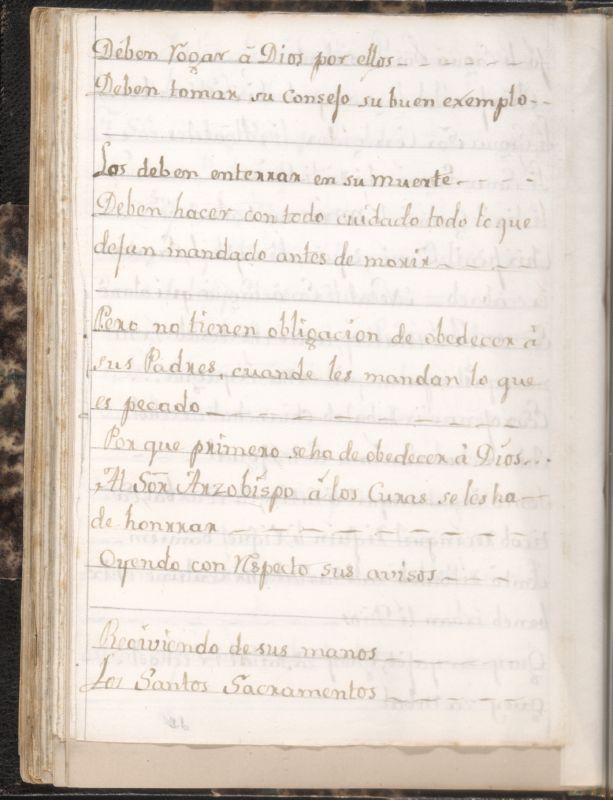 Dében rogar â Dios por ellos
Deben tomar su Consejo su buen exemplo
Los deben enterrar en su muerte
Deben hacer con todo cuidado todo lo que
dejan mandado antes de morir
Pero no tienen obligacion de obedecer â
sus Padres, cuande les mandan lo que
es pecado
Por que primero seha de obedecer â Dios
Al Sor̃ Arzobispo â los Curas se les ha
de honrrar
Oyendo con respecto sus avisos
Reciviendo de sus manos
Los Santos Sacramentos